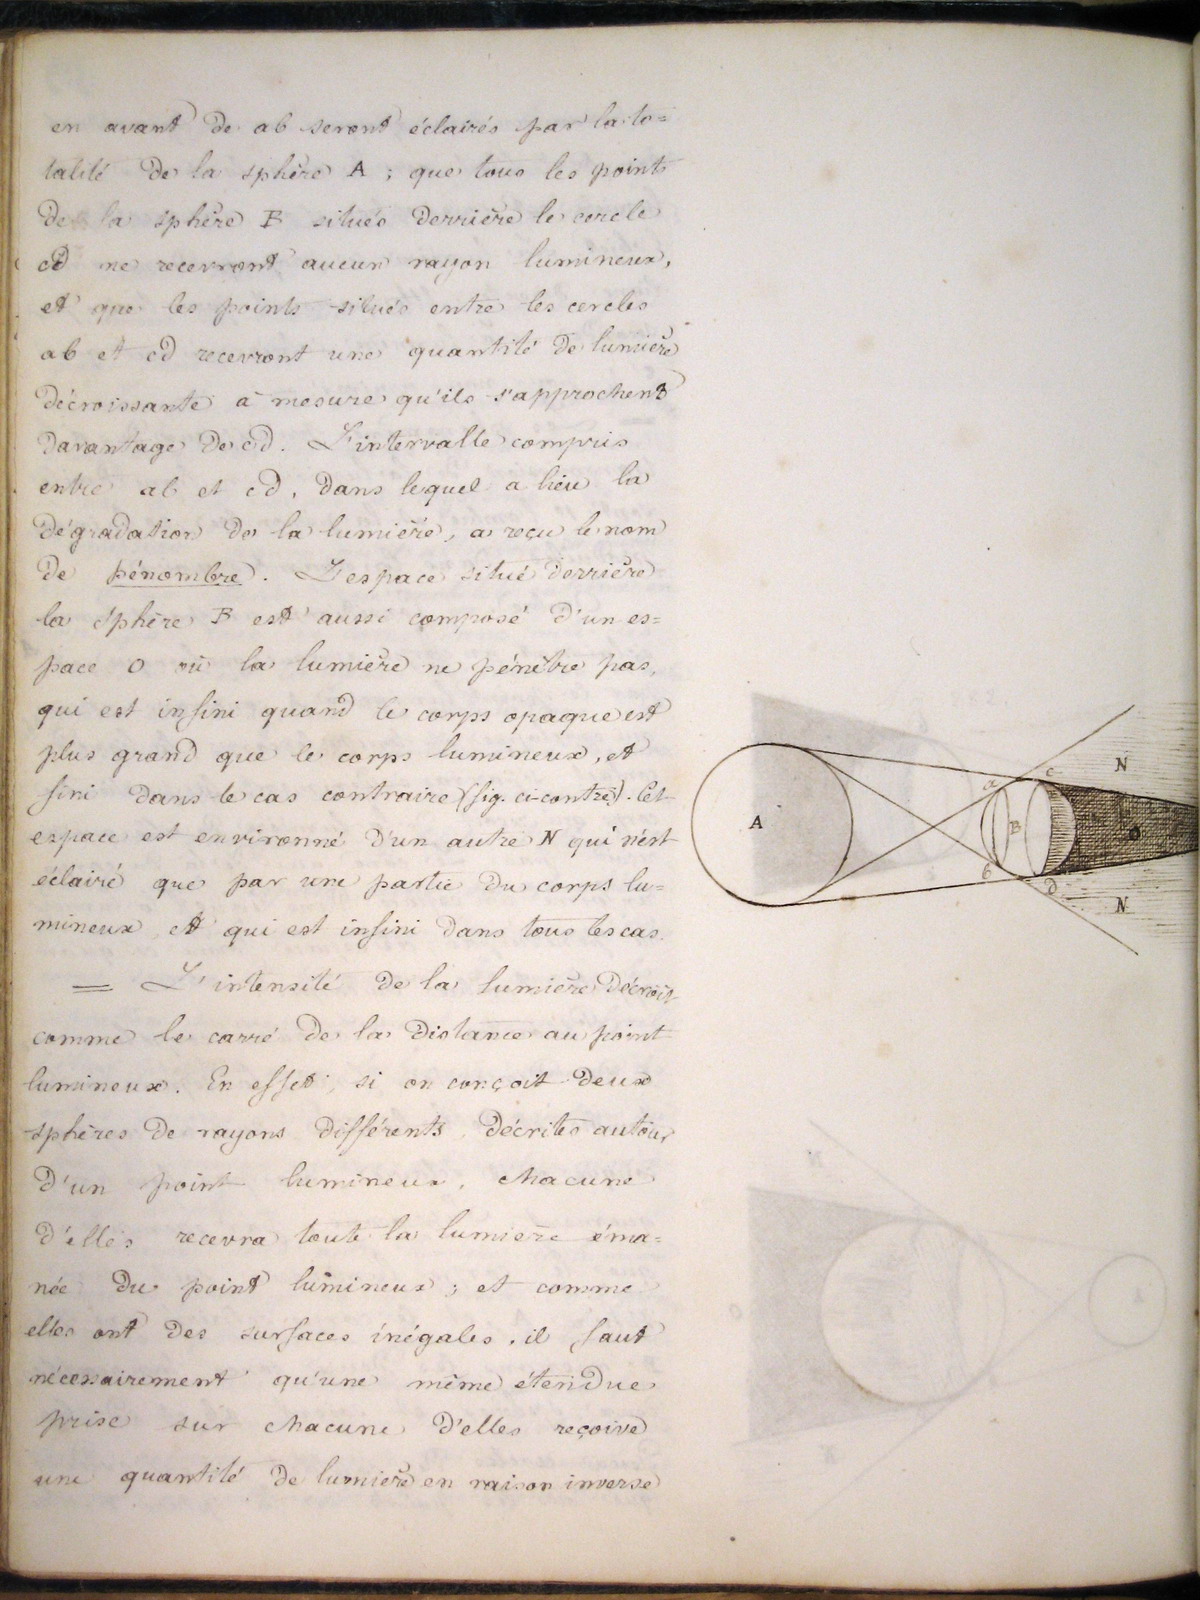 en avant de ab seront éclairés par la to=
talité de la sphère A ; que tous les points
de la sphère B situés derrière le cercle
cd ne recevront aucun rayon lumineux,
et que les points situés entre les cercles
ab et cd recevront une quantité de lumière
décroissante à mesure qu'ils s'approchent
davantage de cd. L'intervalle compris
entre ab et cd, dans lequel a lieu la
dégradation de la lumière, a reçu le nom
de pénombre. L'espace situé derrière
la sphère B est aussi composé d'un es=
pace O où la lumière ne pénètre pas,
qui est infini quand le corps opaque est
plus grand que le corps lumineux, et
fini dans le cas contraire (fig. ci-contre). Cet
espace est environné d'un autre N qui n'est
éclairé que par une partie du corps lu=
mineux et qui est infini dans tous les cas.
= L'intensité de la lumière décroit
comme le carré de la distance au point
lumineux. En effet, si on conçoit deux
sphères de rayons différents, décrites autour
d'un point lumineux, chacune
d'elles recevra toute la lumière éma=
née du point lumineux ; et comme
elles ont des surfaces inégales, il faut
nécessairement qu'une même étendue
prise sur chacune d'elles reçoive
une quantité de lumière en raison inverse
A
a
c
N
B
O
b
d
N